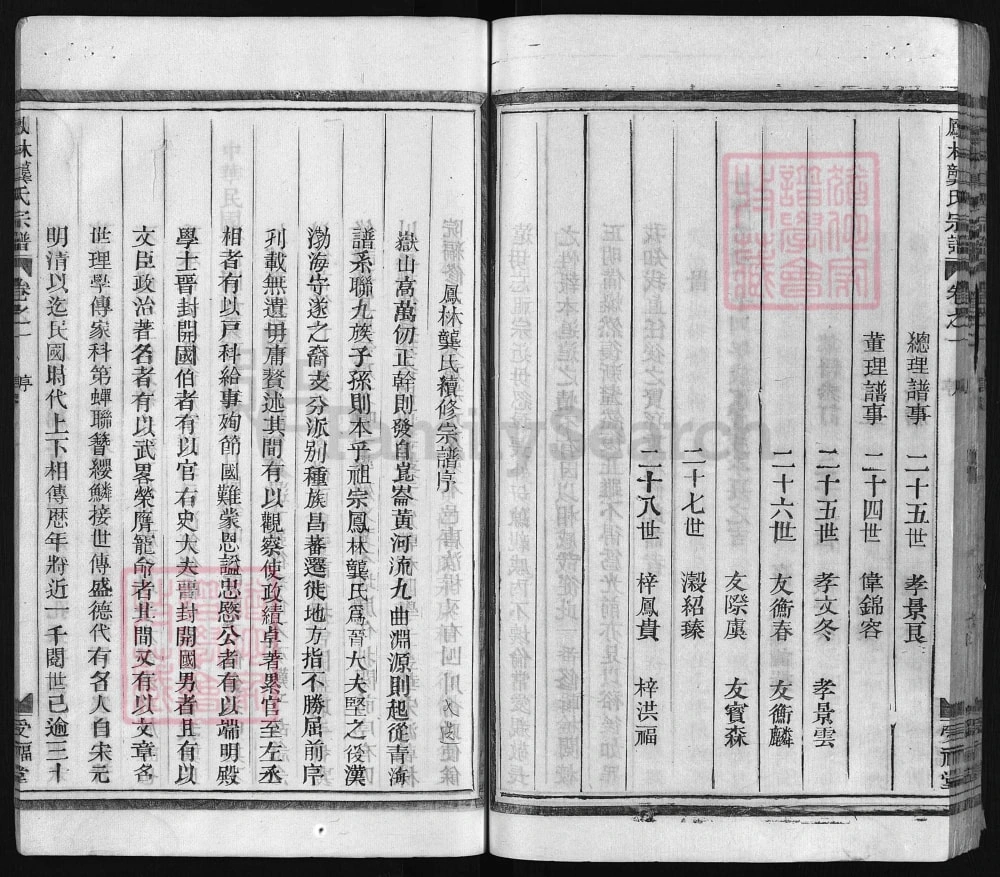 鳳林龔氏宗譜 卷之一
總理譜事 二十五世 孝景良
董理譜事 二十四世 偉錦容
二十五世 孝文冬 孝景雲
二十六世 友衡春 友衡麟
友際虞 友賓森
二十七世 瀫紹臻
二十八世 梓鳳貴 梓洪福
鳳林龔氏續修宗譜序
嶽山高萬仞正幹則發自崑崙黃河流九曲淵源則起從青海
譜系聯九族子孫則本乎祖宗鳳林龔氏爲晉大夫堅之後漢
渤海守遂之裔支分派別種族昌蕃遷徙地方指不勝屈前序
列載無遺毋庸贅述其間有以觀察使政績卓著累官至左丞
相者有以戶科給事殉節國難蒙恩諡忠愍公者有以端明殿
學士晋封開國伯者有以官右史大夫晋封開國男者且有以
文臣政治著名者有以武畧榮膺寵命者其間又有以文章名
世理學傳家科第蟬聯簪纓鱗接世傳盛德代有名人自宋元
明清以迄民國時代上下相傳歷年將近一千閱世已逾三十
鳳林龔氏宗譜 卷之一 序 受福堂
FamilySearch